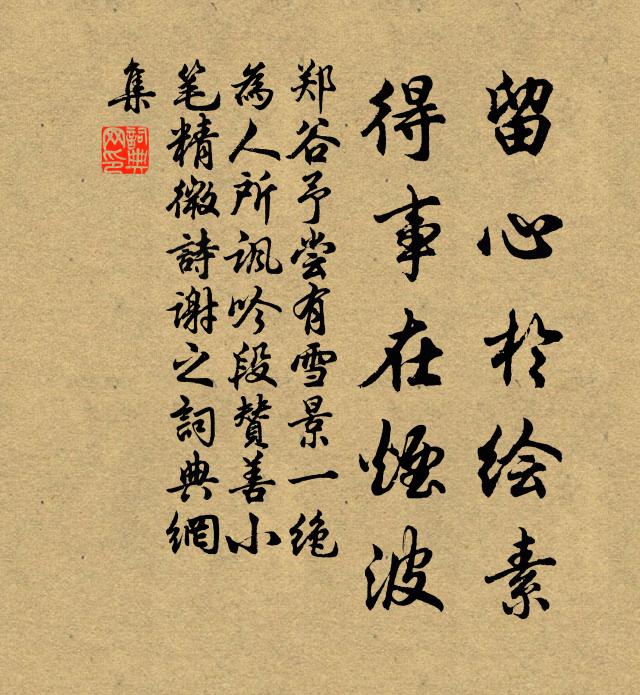 留心於绘素
得事在煙波
郑谷予尝有雪景一绝
為人所讽吟段贊善小
笔精微詩谢之詞典網
集
詞典網印